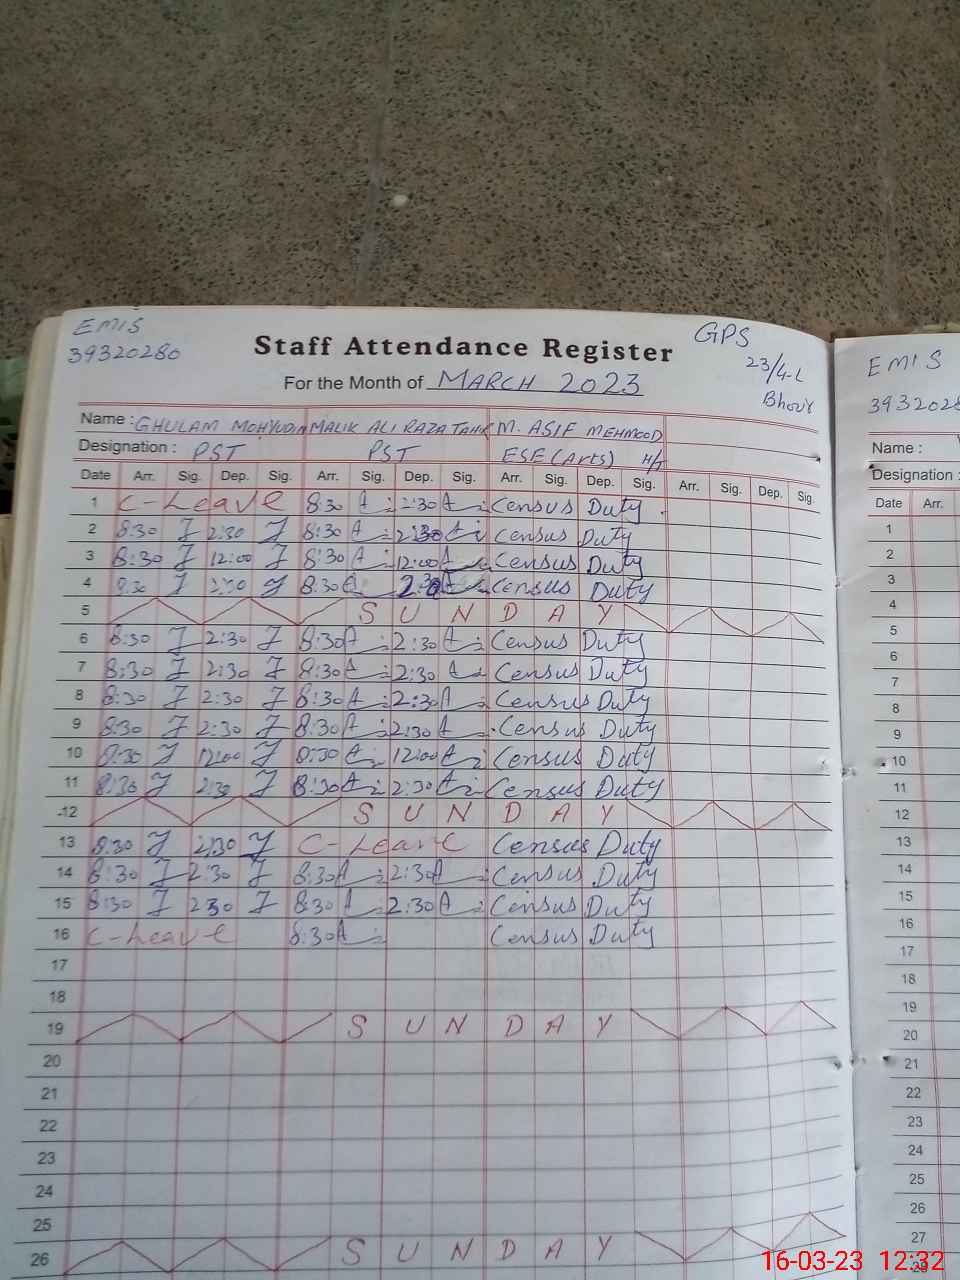 EMIS
39320280
Staff Attendance Register
GPS
23/4-L
Bhour
For the Month of MARCH 2023
Name : GHULAM MOHYUDIN MALIK ALI RAZA TAHIR M. ASIF MEHMOOD
Designation : PST PST ESE (Arts) H/T
Date Arr. Sig. Dep. Sig. Arr. Sig. Dep. Sig. Arr. Sig. Dep. Sig. Arr. Sig. Dep. Sig.
1 C-Leave 8:30 2:30 Census Duty
2 8:30 2:30 8:30 2:30 Census Duty
3 8:30 12:00 8:30 12:00 Census Duty
4 8:30 2:30 8:30 2:30 Census Duty
5 SUNDAY
6 8:30 2:30 8:30 2:30 Census Duty
7 8:30 2:30 8:30 2:30 Census Duty
8 8:30 2:30 8:30 2:30 Census Duty
9 8:30 2:30 8:30 2:30 Census Duty
10 8:30 12:00 8:30 12:00 Census Duty
11 8:30 2:30 8:30 2:30 Census Duty
12 SUNDAY
13 8:30 2:30 C-Leave Census Duty
14 8:30 2:30 8:30 2:30 Census Duty
15 8:30 2:30 8:30 2:30 Census Duty
16 C-Leave 8:30 Census Duty
17
18
19 SUNDAY
20
21
22
23
24
25
26 SUNDAY
EMIS
3932028
Name :
Designation :
Date Arr.
1
2
3
4
5
6
7
8
9
10
11
12
13
14
15
16
17
18
19
20
21
22
23
24
25
26
27
28
16-03-23 12:32